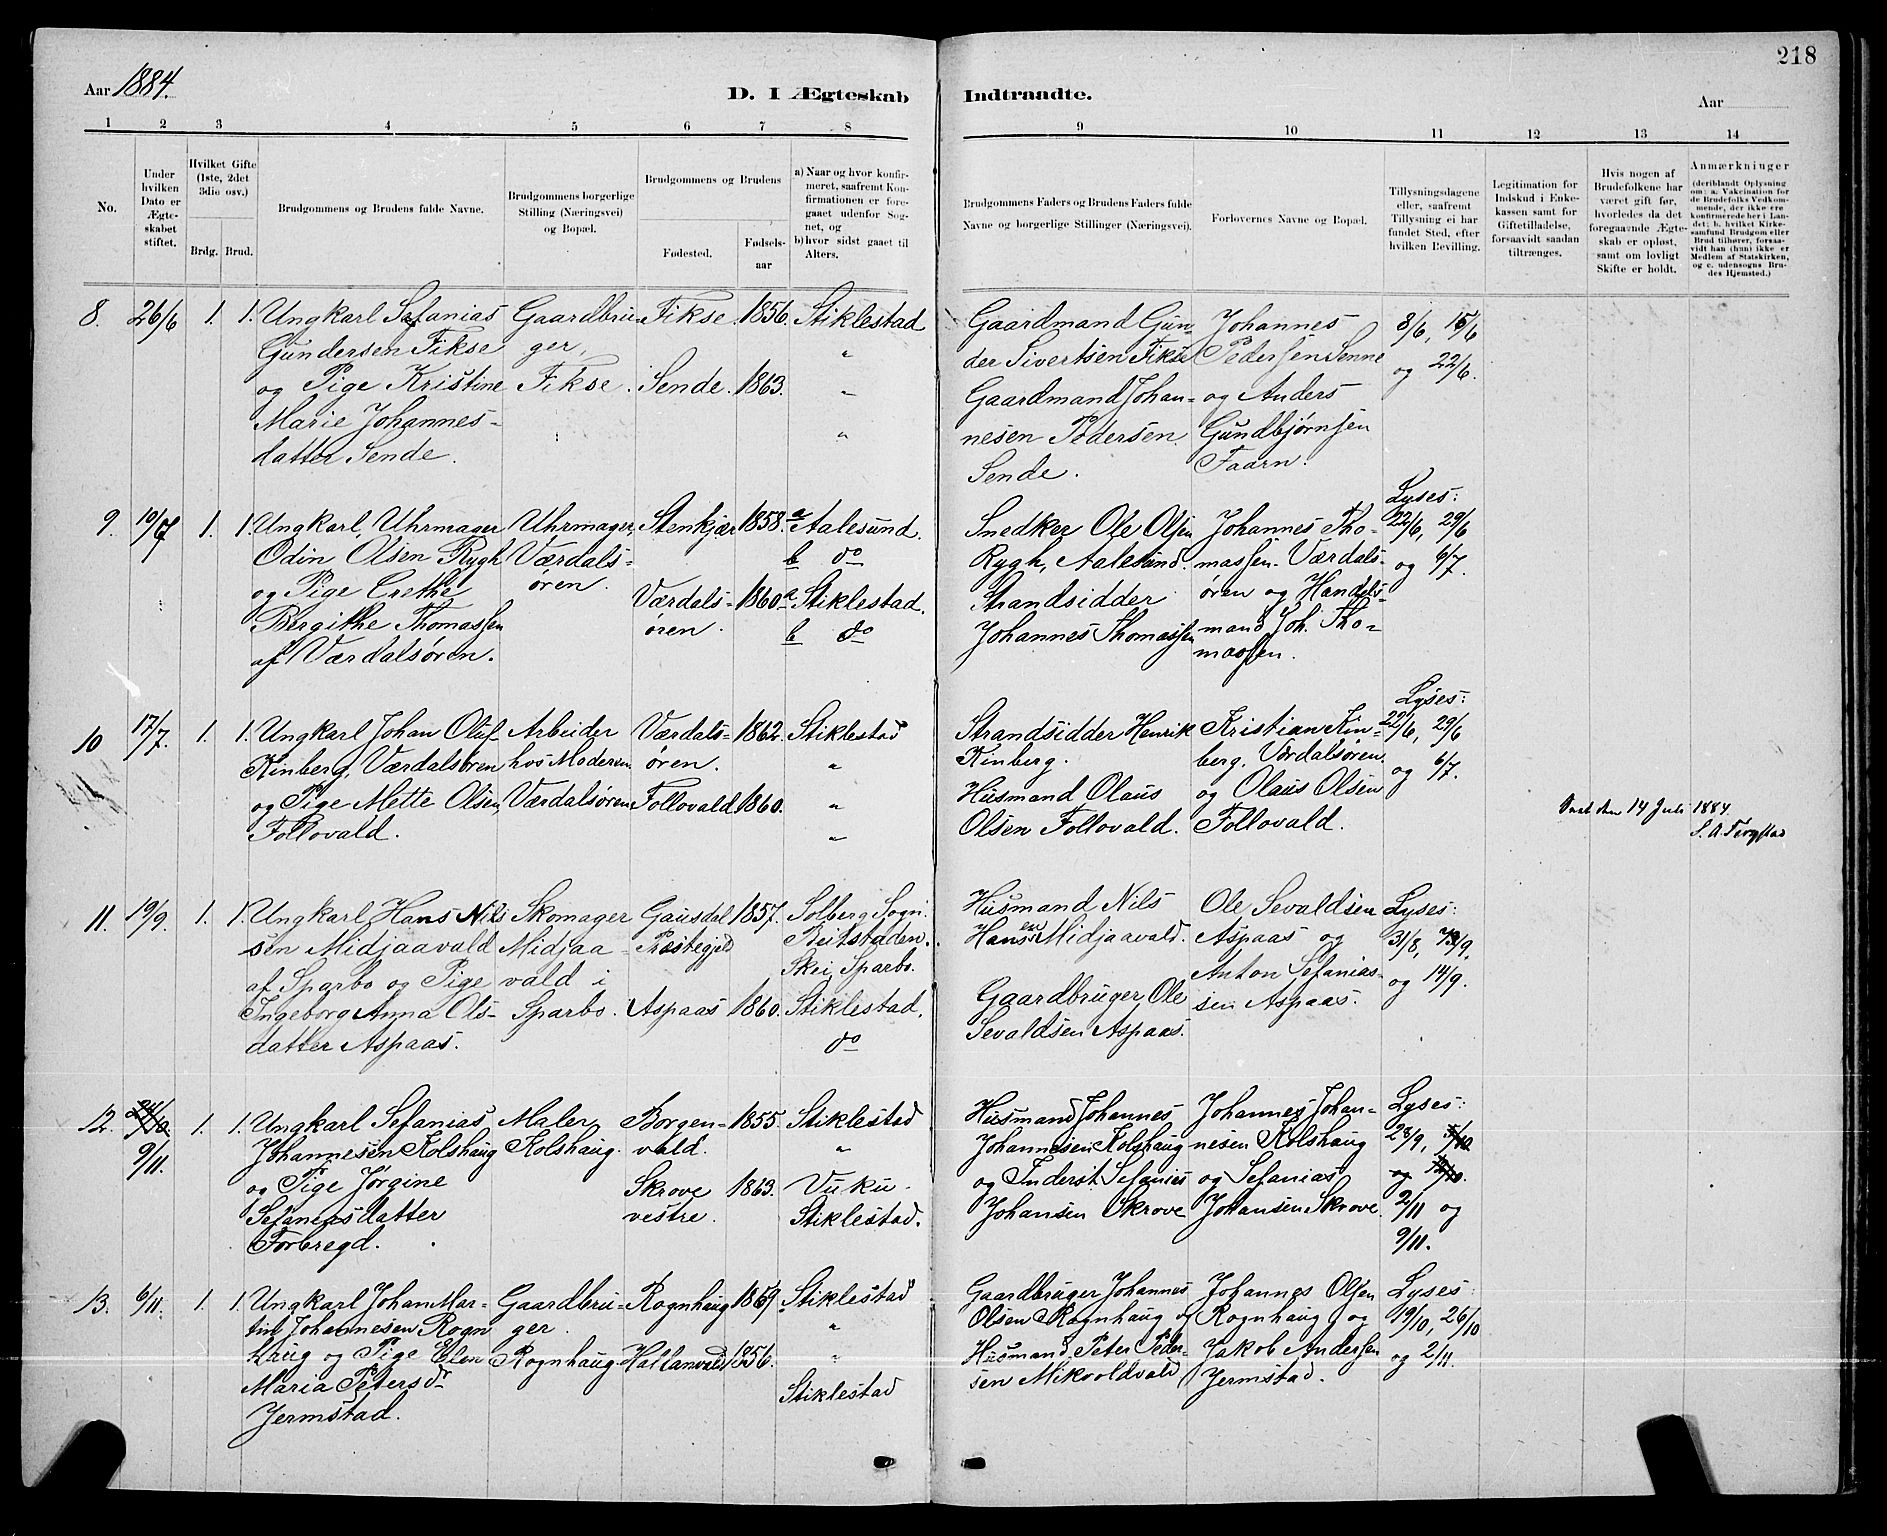 218
Aar 1884.
D. I Ægteskab Indtraadte.
Aar
1 2 3 4 5 6 7 8 9 10 11 12 13 14
No.
Under hvilken Dato er Ægteskabet stiftet.
Hvilket Gifte (1ste, 2det 3die osv.)
Brdg. Brud.
Brudgommens og Brudens fulde Navne.
Brudgommens borgerlige Stilling (Næringsvei) og Bopæl.
Brudgommens og Brudens
Fødested. Fødselsaar
a) Naar og hvor konfirmeret, saafremt Konfirmationen er foregaaet udenfor Sognet, og
b) hvor sidst gaaet til Alters.
Brudgommens Faders og Brudens Faders fulde Navne og borgerlige Stillinger (Næringsvei).
Forlovernes Navne og Bopæl.
Tillysningsdagene eller, saafremt Tillysning ei har fundet Sted, efter hvilken Bevilling.
Legitimation for Indskud i Enkekassen samt for Giftetilladelse, forsaavidt saadan tiltrænges.
Hvis nogen af Brudefolkene har været gift før, hvorledes da det foregaaende Ægteskab er opløst, samt om lovligt Skifte er holdt.
Anmærkninger
(deriblandt Oplysning om: a. Vakcination for de Brudefolks Vedkommende, der ikke ere konfirmerede her i Landet; b. hvilket Kirkesamfund Brudgom eller Brud tilhører, forsaavidt han (hun) ikke er Medlem af Statskirken, og c. udensogns Brudes Hjemsted.)
8. 26/6 1. 1. Ungkarl Sefanias Gaardbru- Fikse 1856. Stiklestad Gaardmand Gun- Johannes 8/6, 15/6
Gundersen Fikse ger, " der Sivertsen Fikse Pedersen Senne og 22/6.
og Pige Kristine Fikse. Sende. 1863. " Gaardmand Johan- og Anders
Marie Johannes- " nesen Pedersen Gundbjørnsen
datter Sende. Sende. Faarn.
Lyses:
9. 10/7 1. 1. Ungkarl, Uhrmager Uhrmager, Stenkjær 1858. a Aalesund. Snedker Ole Olsen Johannes Tho- 22/6, 29/6
Odin Olsen Rygh Værdals- b do Rygh, Aalesund. massen. Værdals- og 6/7.
og Pige Grethe ören. Værdals- 1860. a Stiklestad. Strandsidder ören og Handels-
Bergithe Thomassen ören. b do Johannes Thomassen mand Joh. Tho-
af Værdalsøren. massen.
Lyses:
10 17/7. 1. 1. Ungkarl Johan Oluf Arbeider Værdals- 1862. Stiklestad Strandsidder Henrik Kristian Kin- 22/6, 29/6
Kinberg, Værdalsøren hos Moderen ören. " Kinberg. berg, Værdalsøren og 6/7.
og Pige Mette Olsen, Værdalsøren Follovald 1860. " Husmand Olaus og Olaus Olsen
Follovald. " Olsen Follovald. Follovald.
den 14 Juli 1884.
11. 19/9 1. 1. Ungkarl Hans Nils Skomager Gausdal 1857. Solberg Sogn. Husmand Nils Ole Sevaldsen Lyses:
sen Midjaavald Midjaa Præstegjeld Beitstaden. Hansen Midjaavald. Aspaas og 31/8, 7/9,
af Sparbo og Pige vald i Skei, Sparbo. Anton Sefanias- og 14/9.
Ingeborg Anna Ols- Sparbo. Aspaas 1860. Stiklestad. Gaardbruger Ole sen Aspaas.
datter Aspaas. do Sevaldsen Aspaas.
12. 9/11. 1. 1. Ungkarl Sefanias Maler Borgen- 1855. Stiklestad Husmand Johannes Johannes Johan- Lyses:
Johannesen Kolshaug Kolshaug. vald. " Johannesen Kolshaug nesen Kolshaug 28/9, 5/10
og Pige Jørgine Skrove 1863. Vuku. og Inderst Sefanias og Sefanias og 12/10.
Sefaniasdatter vestre. Stiklestad. Johansen Skrove Johansen Skrove. 2/11 og
Forbregd. 9/11.
13. 6/11. 1. 1. Ungkarl Johan Mar- Gaardbru- Rognhaug 1859 Stiklestad Gaardbruger Johannes Johannes Olsen Lyses:
tin Johannesen Rogn ger. " Olsen Rognhaug og Rognhaug og 19/10, 26/10
haug og Pige Elen Rognhaug. Hallanvald 1856. " Husmand Peter Peder- Jakob Andersen og 2/11.
Maria Petersdr Stiklestad sen Mikvoldvald Jermstad.
Jermstad.